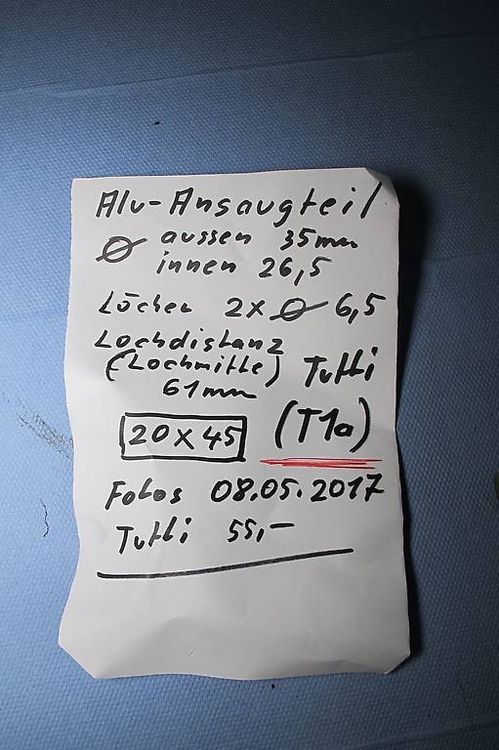 Alu-Ansaugteil
Ø aussen 35mm
innen 26,5
Löcher 2x Ø 6,5
Lochdistanz
(Lochmitte) Tutti
61mm
20x45 (T1a)
Fotos 08.05.2017
Tutti 55,-